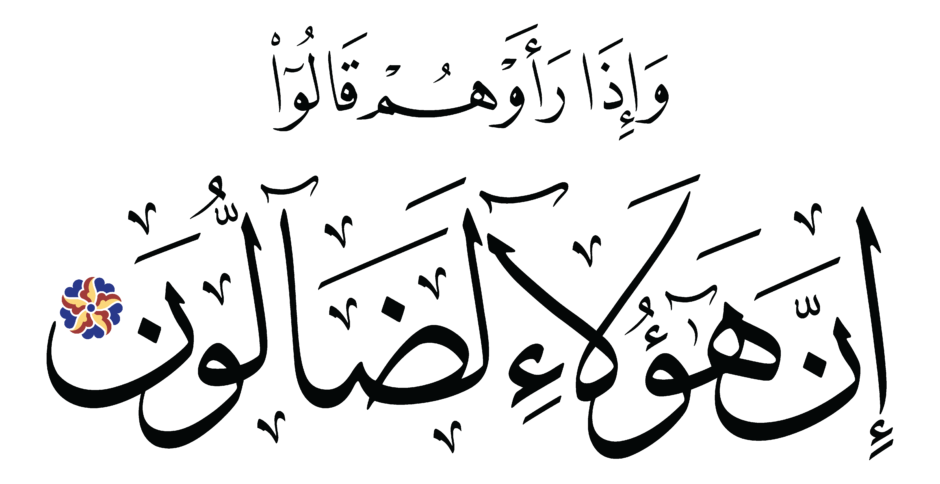 وَإِذَا رَأَوْهُمْ قَالُوٓا۟
إِنَّ هَٰٓؤُلَآءِ لَضَآلُّونَ